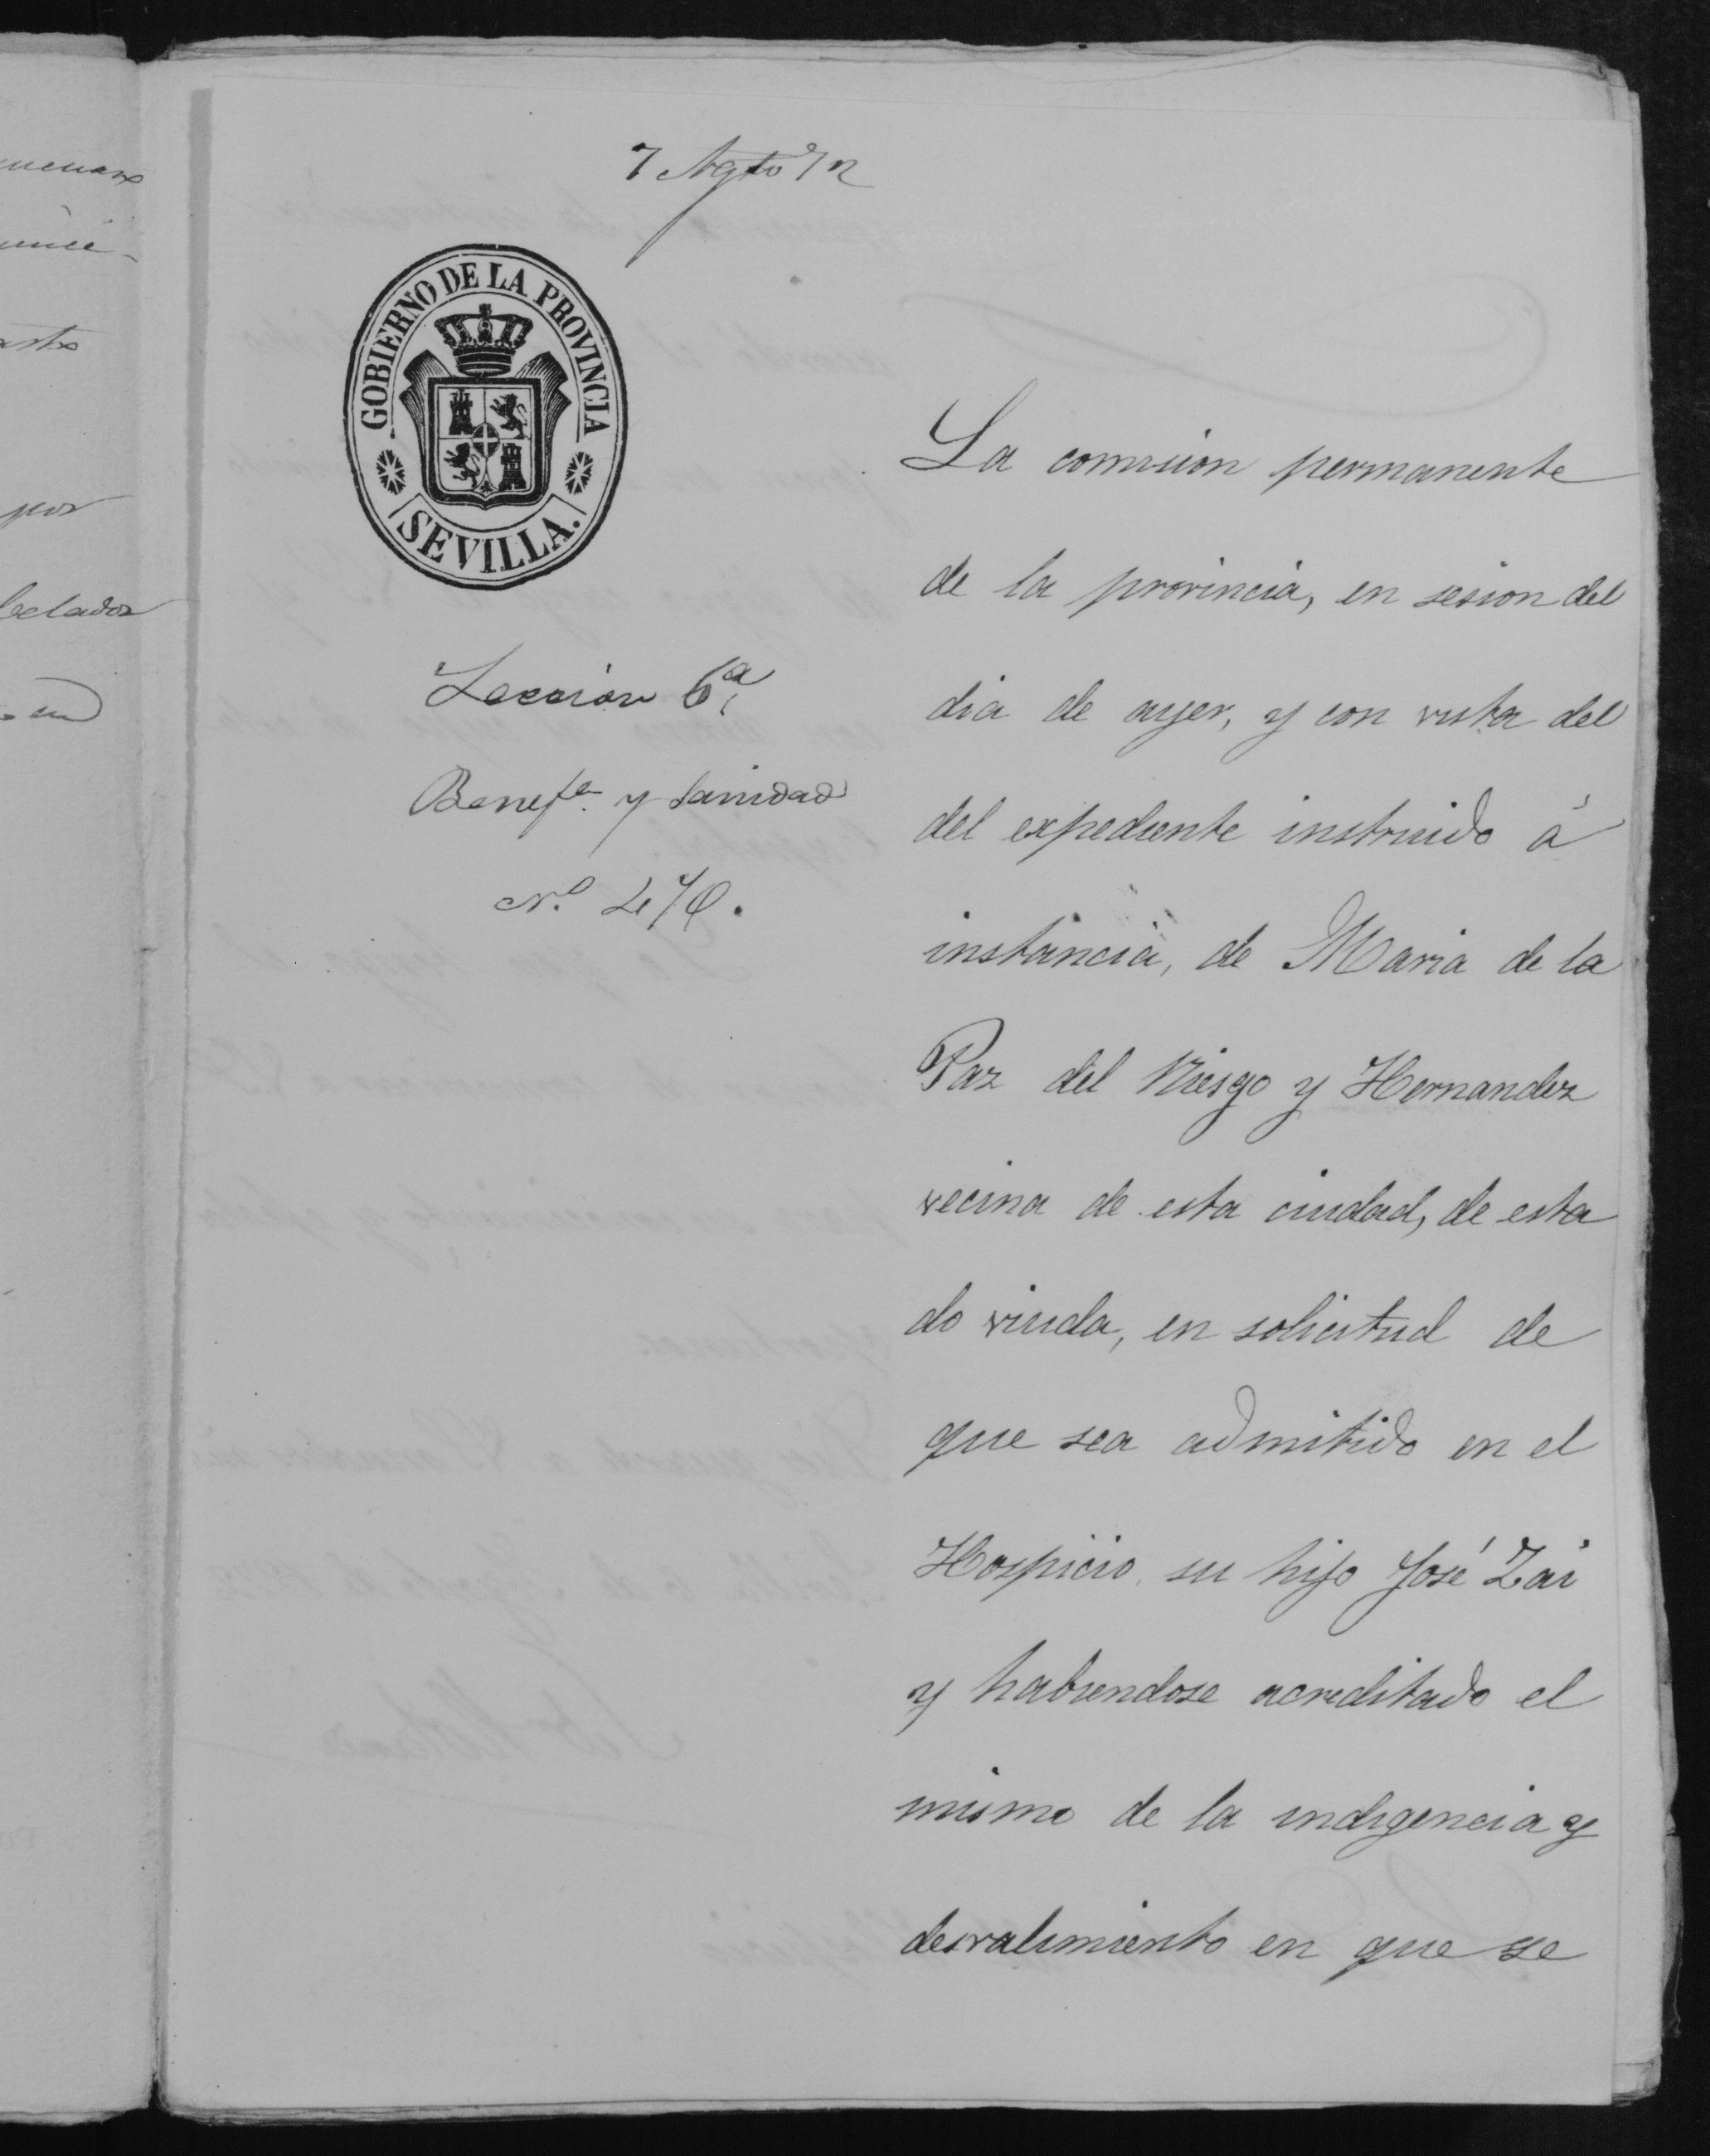 7 Agto 72
GOBIERNO DE LA PROVINCIA
SEVILLA.
Seccion 6ª
Benefª. y Sanidad
Nº 470.
La comision permanente
de la provincia, en sesion del
dia de ayer, y con vista del
del expediente instruido á
instancia, de Maria de la
Paz del Riesgo y Hernandez
vecina de esta ciudad, de esta
do viuda, en solicitud de
que sea admitido en el
Hospicio, su hijo José Zai
y habiendose acreditado el
mismo de la indigencia y
desvalimiento en que se
por